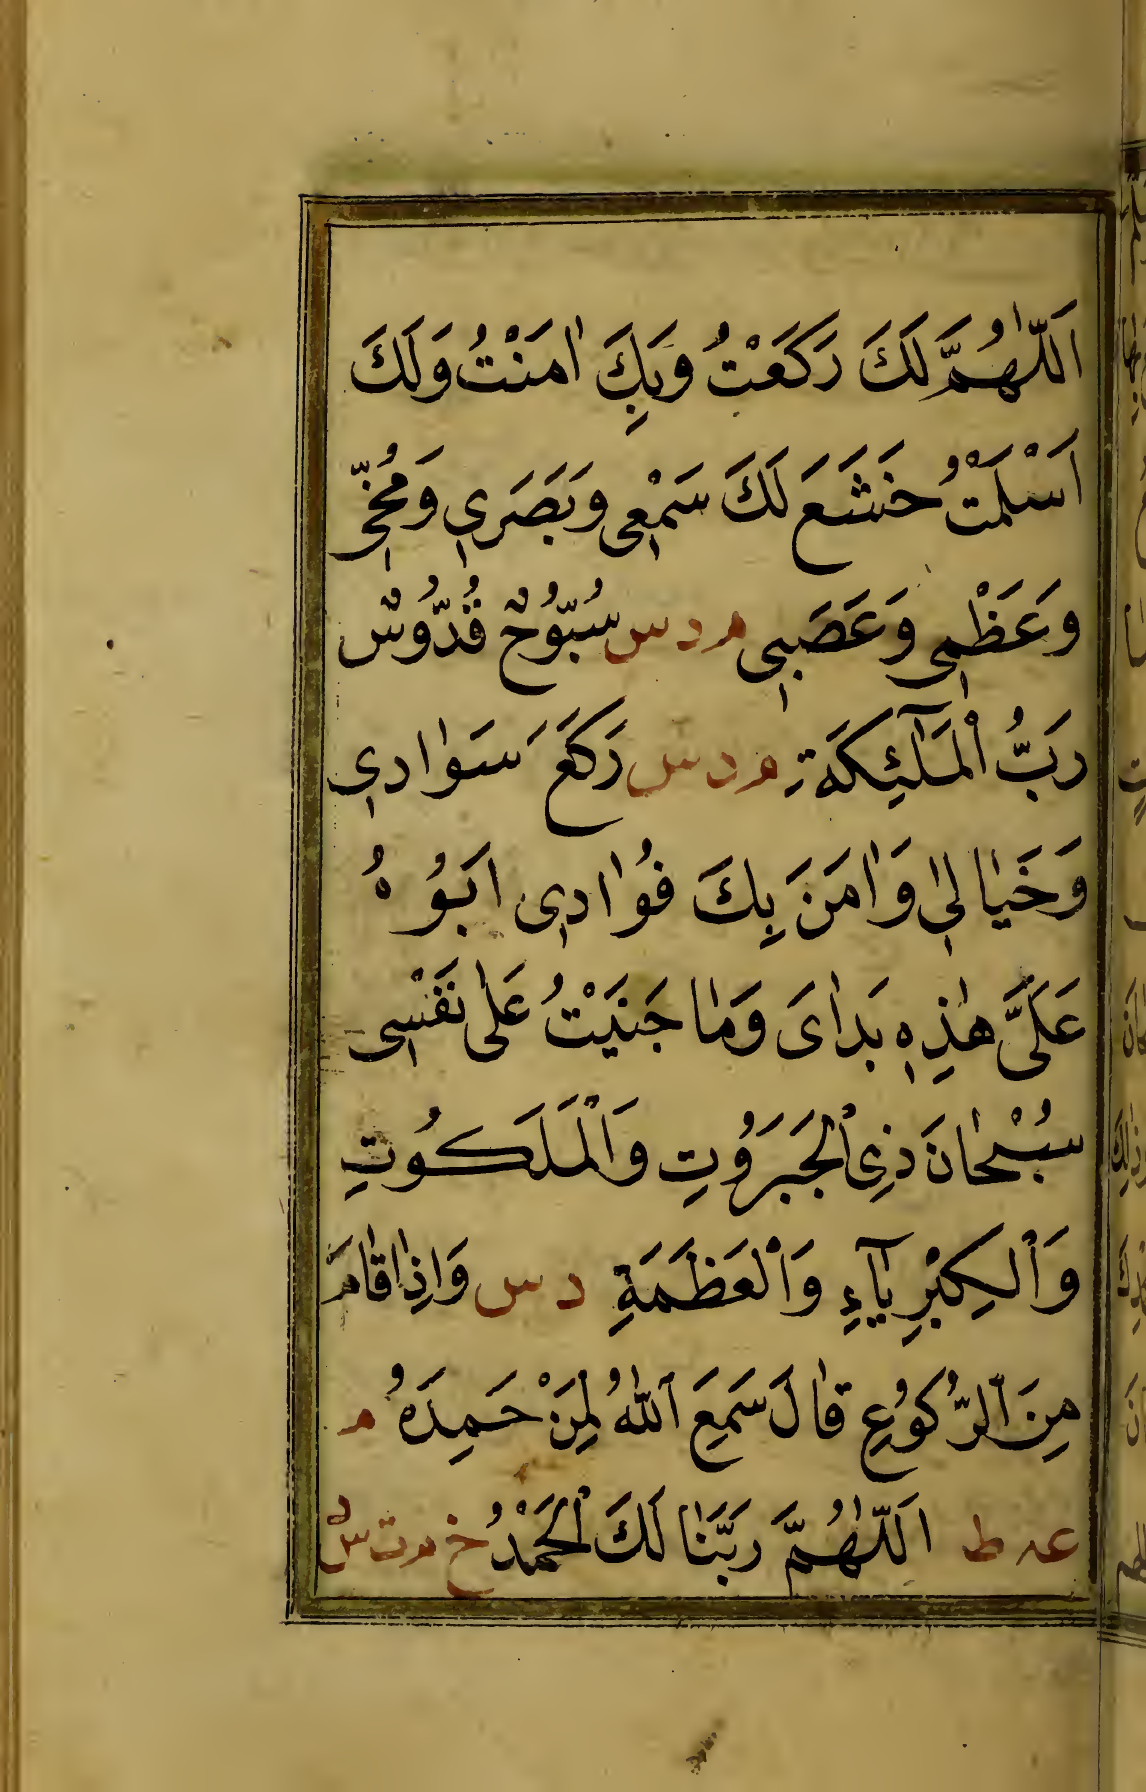 اَللّٰهُمَّ لَكَ رَكَعْتُ وَبِكَ اٰمَنْتُ وَلَكَ
اَسْلَمْتُ خَشَعَ لَكَ سَمْعٖى وَبَصَرٖي وَمُخّٖى
وَعَظْمٖى وَعَصَبٖى م د س سُبُّوْحٌ قُدُّوْسٌ
رَبُّ الْمَلٰٓئِكَةِ م د س رَكَعَ سَوٰادٖى
وَخَيٰالٖى وَاٰمَنَ بِكَ فُوٰادٖى اَبُوْهُ
عَلَىَّ هٰذِهٖ يَدٰاىَ وَمٰا جَنَيْتُ عَلٰى نَفْسٖى
سُبْحٰانَ ذِى الْجَبَرُوْتِ وَالْمَلَكُوْتِ
وَالْكِبْرِيٰٓاءِ وَالْعَظَمَةِ د س وَاِذٰا قٰامَ
مِنَ الرُّكُوْعِ قٰالَ سَمِعَ اللّٰهُ لِمَنْ حَمِدَهُ م
عه ط اَللّٰهُمَّ رَبَّنٰا لَكَ الْحَمْدُ خ م ت س